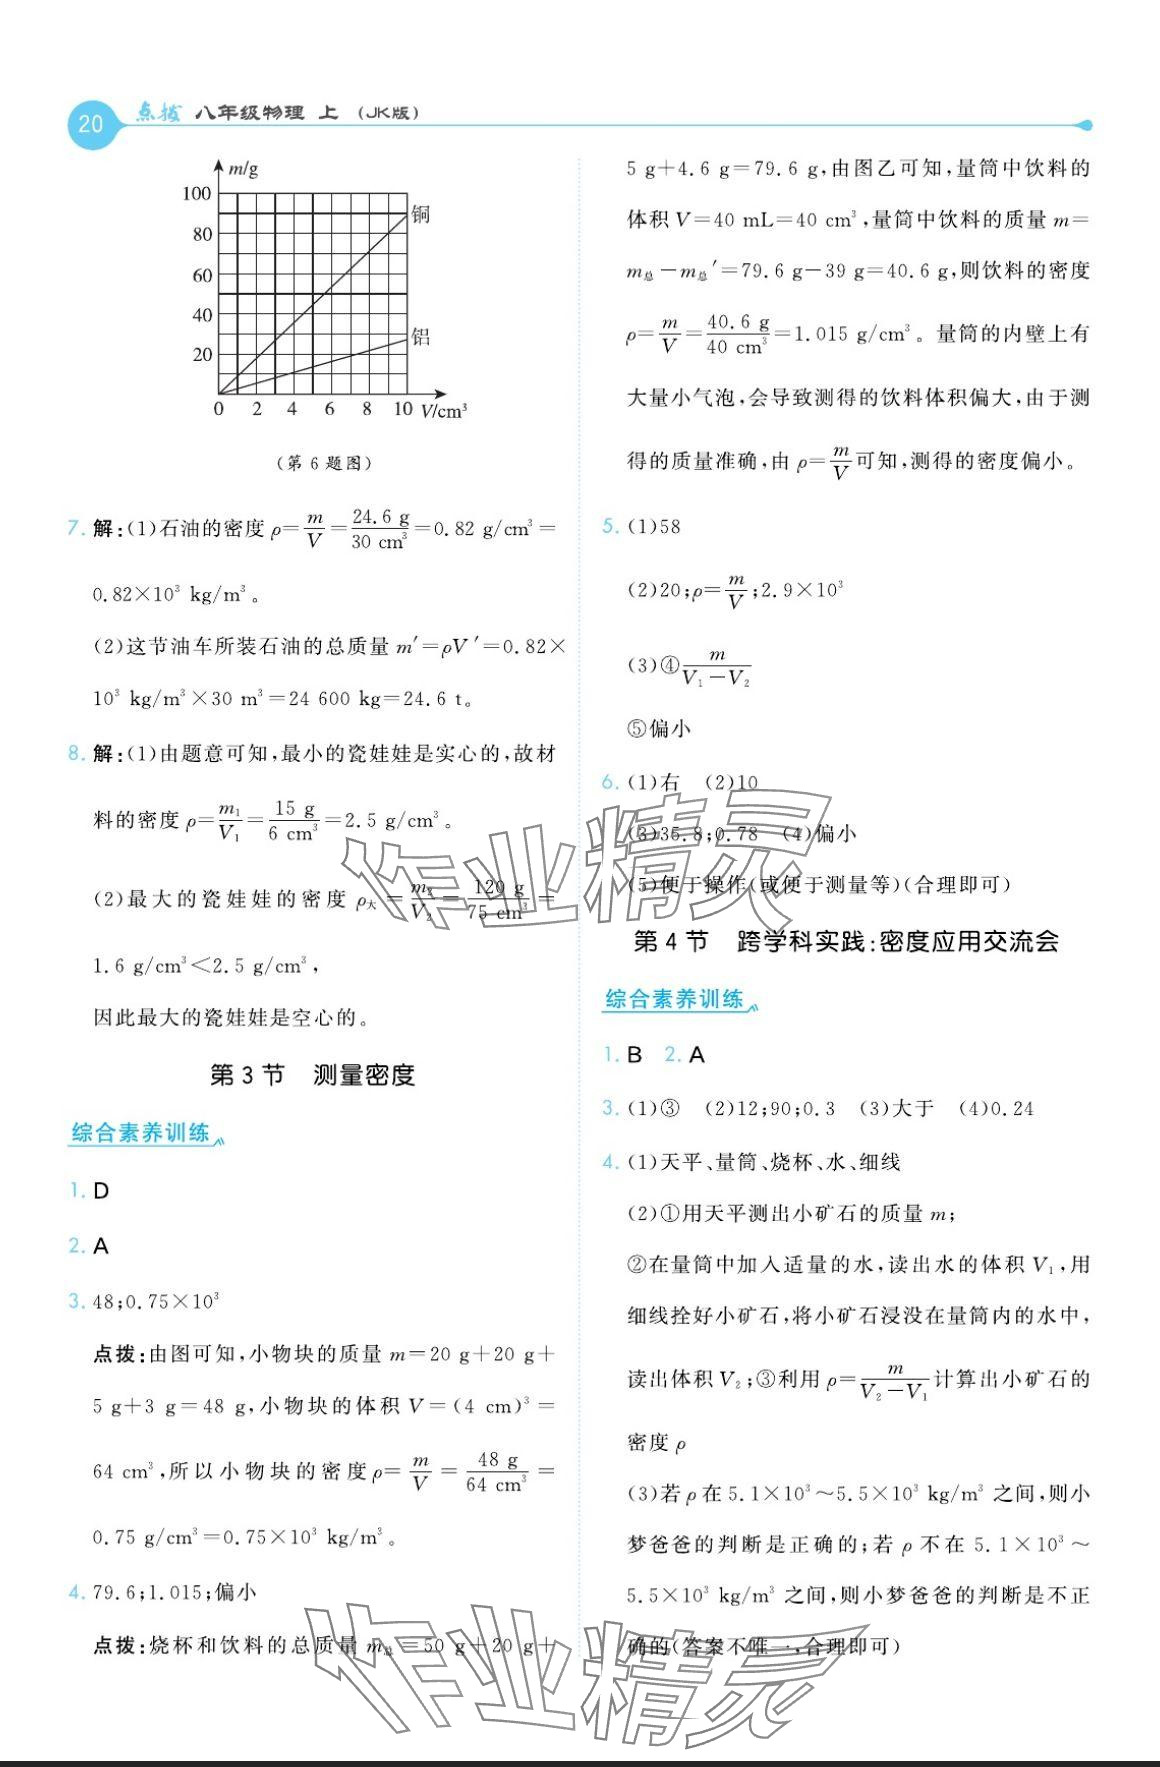 20 点拨 八年级物理 上 (JK版)
m/g
100
80
60
40
20
0 2 4 6 8 10 V/cm³
铜
铝
(第6题图)
7. 解:(1)石油的密度 ρ=m/V=24.6 g/30 cm³=0.82 g/cm³=
0.82×10³ kg/m³。
(2)这节油车所装石油的总质量 m′=ρV′=0.82×
10³ kg/m³×30 m³=24 600 kg=24.6 t。
8. 解:(1)由题意可知,最小的瓷娃娃是实心的,故材
料的密度 ρ=m₁/V₁=15 g/6 cm³=2.5 g/cm³。
(2)最大的瓷娃娃的密度 ρ大=m₂/V₂=120 g/75 cm³=
1.6 g/cm³<2.5 g/cm³,
因此最大的瓷娃娃是空心的。
第3节 测量密度
综合素养训练
1. D
2. A
3. 48;0.75×10³
点拨:由图可知,小物块的质量 m=20 g+20 g+
5 g+3 g=48 g,小物块的体积 V=(4 cm)³=
64 cm³,所以小物块的密度ρ=m/V=48 g/64 cm³=
0.75 g/cm³=0.75×10³ kg/m³。
4. 79.6;1.015;偏小
点拨:烧杯和饮料的总质量 m总=50 g+20 g+
5 g+4.6 g=79.6 g,由图乙可知,量筒中饮料的
体积 V=40 mL=40 cm³,量筒中饮料的质量 m=
m总-m总′=79.6 g-39 g=40.6 g,则饮料的密度
ρ=m/V=40.6 g/40 cm³=1.015 g/cm³。量筒的内壁上有
大量小气泡,会导致测得的饮料体积偏大,由于测
得的质量准确,由 ρ=m/V可知,测得的密度偏小。
5. (1)58
(2)20;ρ=m/V;2.9×10³
(3)④m/(V₁-V₂)
⑤偏小
6. (1)右 (2)10
(3)35.8;0.78 (4)偏小
(5)便于操作(或便于测量等)(合理即可)
第4节 跨学科实践:密度应用交流会
综合素养训练
1. B 2. A
3. (1)③ (2)12;90;0.3 (3)大于 (4)0.24
4. (1)天平、量筒、烧杯、水、细线
(2)①用天平测出小矿石的质量 m;
②在量筒中加入适量的水,读出水的体积 V₁,用
细线拴好小矿石,将小矿石浸没在量筒内的水中,
读出体积 V₂;③利用 ρ=m/(V₂-V₁)计算出小矿石的
密度 ρ
(3)若 ρ 在 5.1×10³~5.5×10³ kg/m³ 之间,则小
梦爸爸的判断是正确的;若 ρ 不在 5.1×10³~
5.5×10³ kg/m³ 之间,则小梦爸爸的判断是不正
确的(答案不唯一,合理即可)
作业精灵
作业精灵